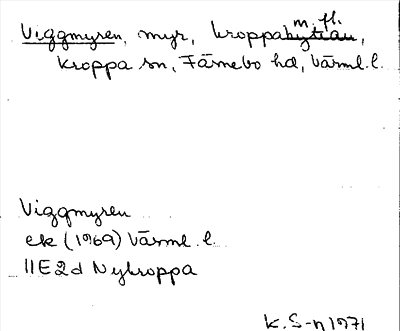 m. fl.
Viggmyren, myr, kroppahyttan,
Kroppa sn, Färnebo hd, Värml. l.
Viggmyren
ek (1969) Värml. l.
11E2d Nykroppa
K. S-n 1971